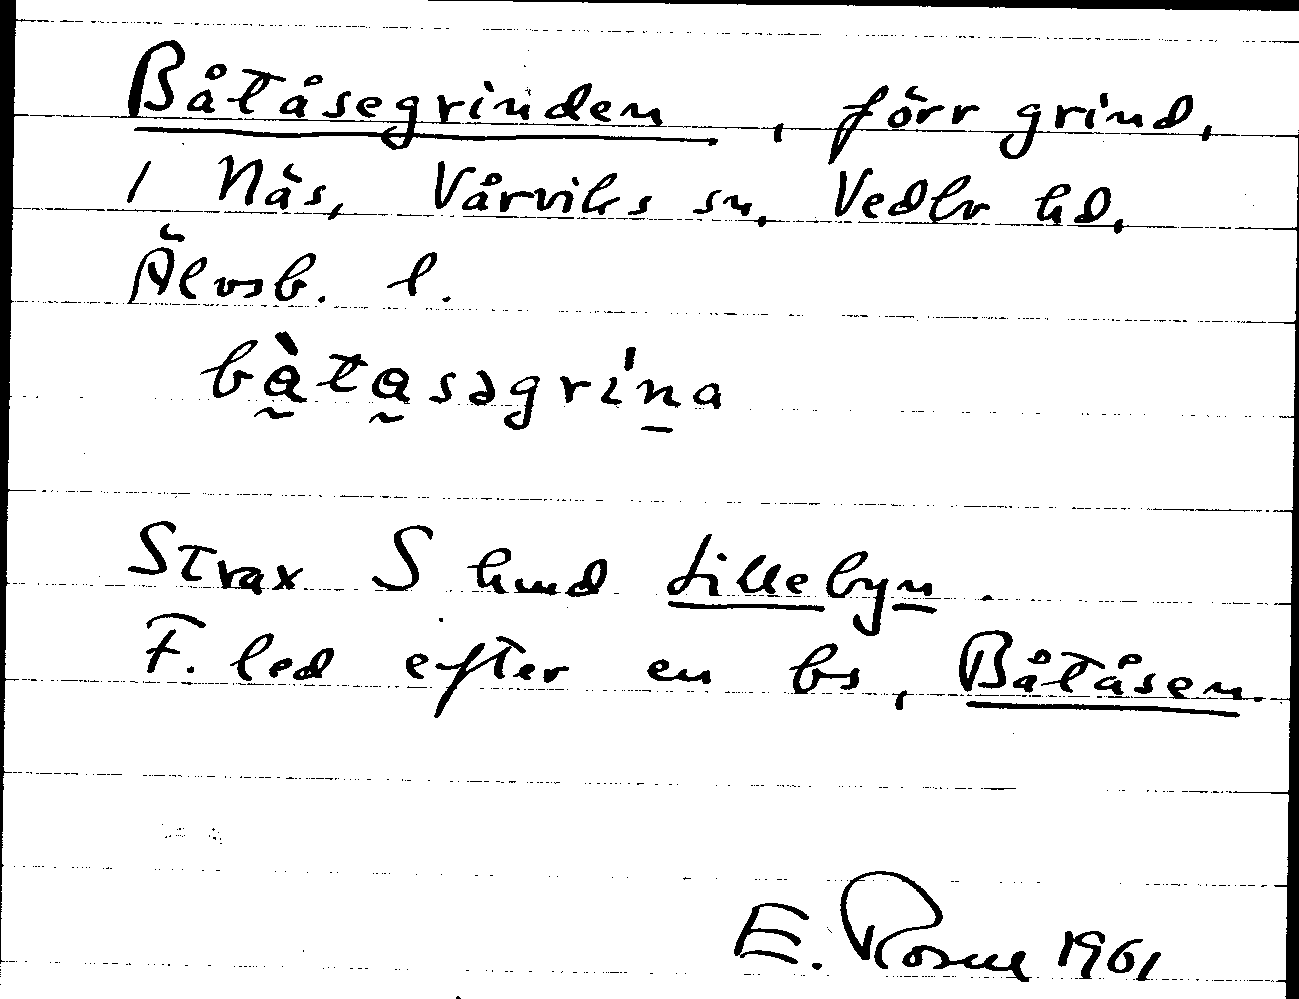 Båtåsegrinden, förr grind,
1 Näs, Vårviks sn, Vedbo hd,
Älvsb. l.
bàtasəgrína
Strax S hmd Lillebyn.
F. led efter en bs, Båtåsen.
E. Rosne 1961